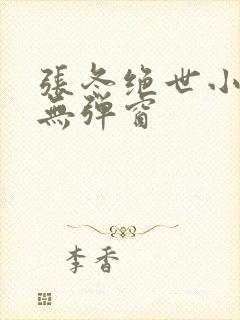 張冬绝世小
無弹窗
李香